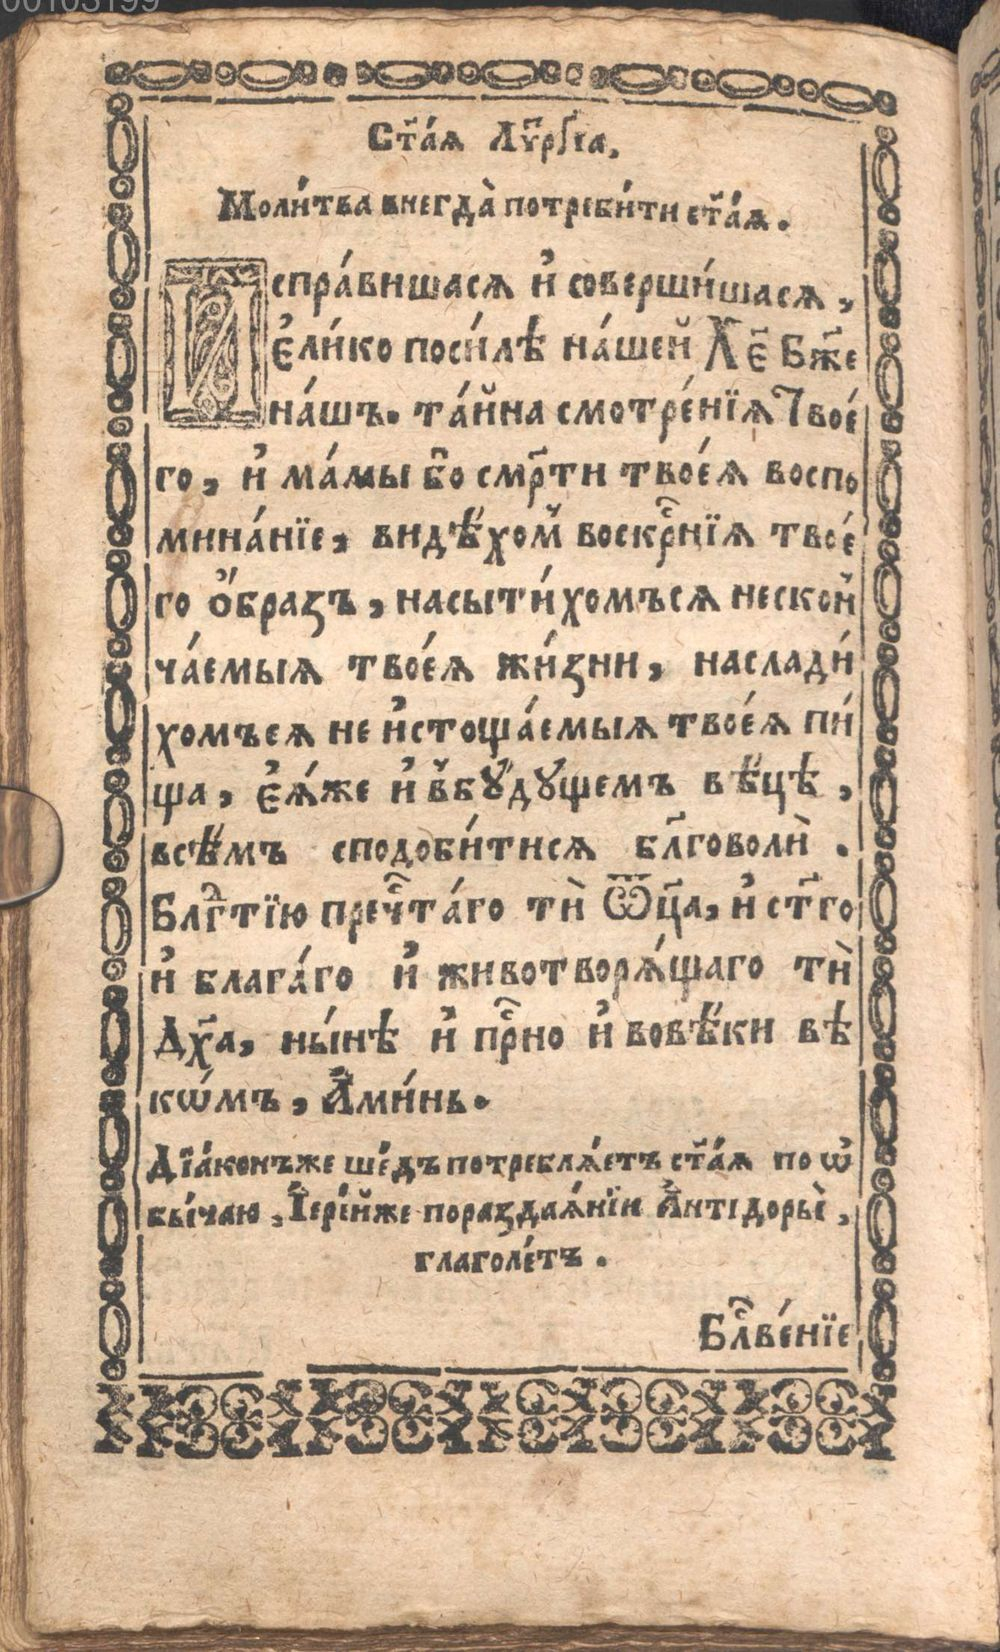 00103199
Ст҃а́ѧ Лѵⷮрⷢ҇їа,
Моли́тва внегда̀ потреби́ти ст҃а́ѧ.
Испра́вишасѧ и҆ соверши́шасѧ,
є҆ли́ко поси́лѣ на́шей Хⷭ҇є Бж҃е
на́шъ. та́йна смотре́нїѧ Твое́
го, и҆ ма́мы бо̑ смр҃ти твоеѧ́ воспо
мина́нїе, видѣ́хомꙿ воскр҃нїѧ твое́
го о҆́бразъ, насыти́хомъсѧ нескон
ча́емыѧ твоеѧ́ жи́зни, наслади́
хомъсѧ не и҆стоща́емыѧ твоеѧ́ пи́
ща, є҆ѧ́же и҆ вꙿбꙋ́дꙋщемъ вѣ́цѣ,
всѣ́мъ сподоби́тисѧ бл҃говоли̇̀.
Блгⷣтїю преч҃та́го ти̇̀ Ѿц҃а, и҆ ст҃го
и҆ блага́го и҆ животворѧ́щаго ти̇̀
Дх҃а, ны́нѣ и҆ пр҃но и҆ вовѣ́ки вѣ
кѡ́мъ, А҆ми́нь.
Дїа́конъже ше́дъ потреблѧ́етъ ст҃а́ѧ по ѡ҆
бы́чаю, І҆ере́йже пораздаѧ́нїи А҆нтідоры̀,
глаголе́тъ.
Бл҃ве́нїе